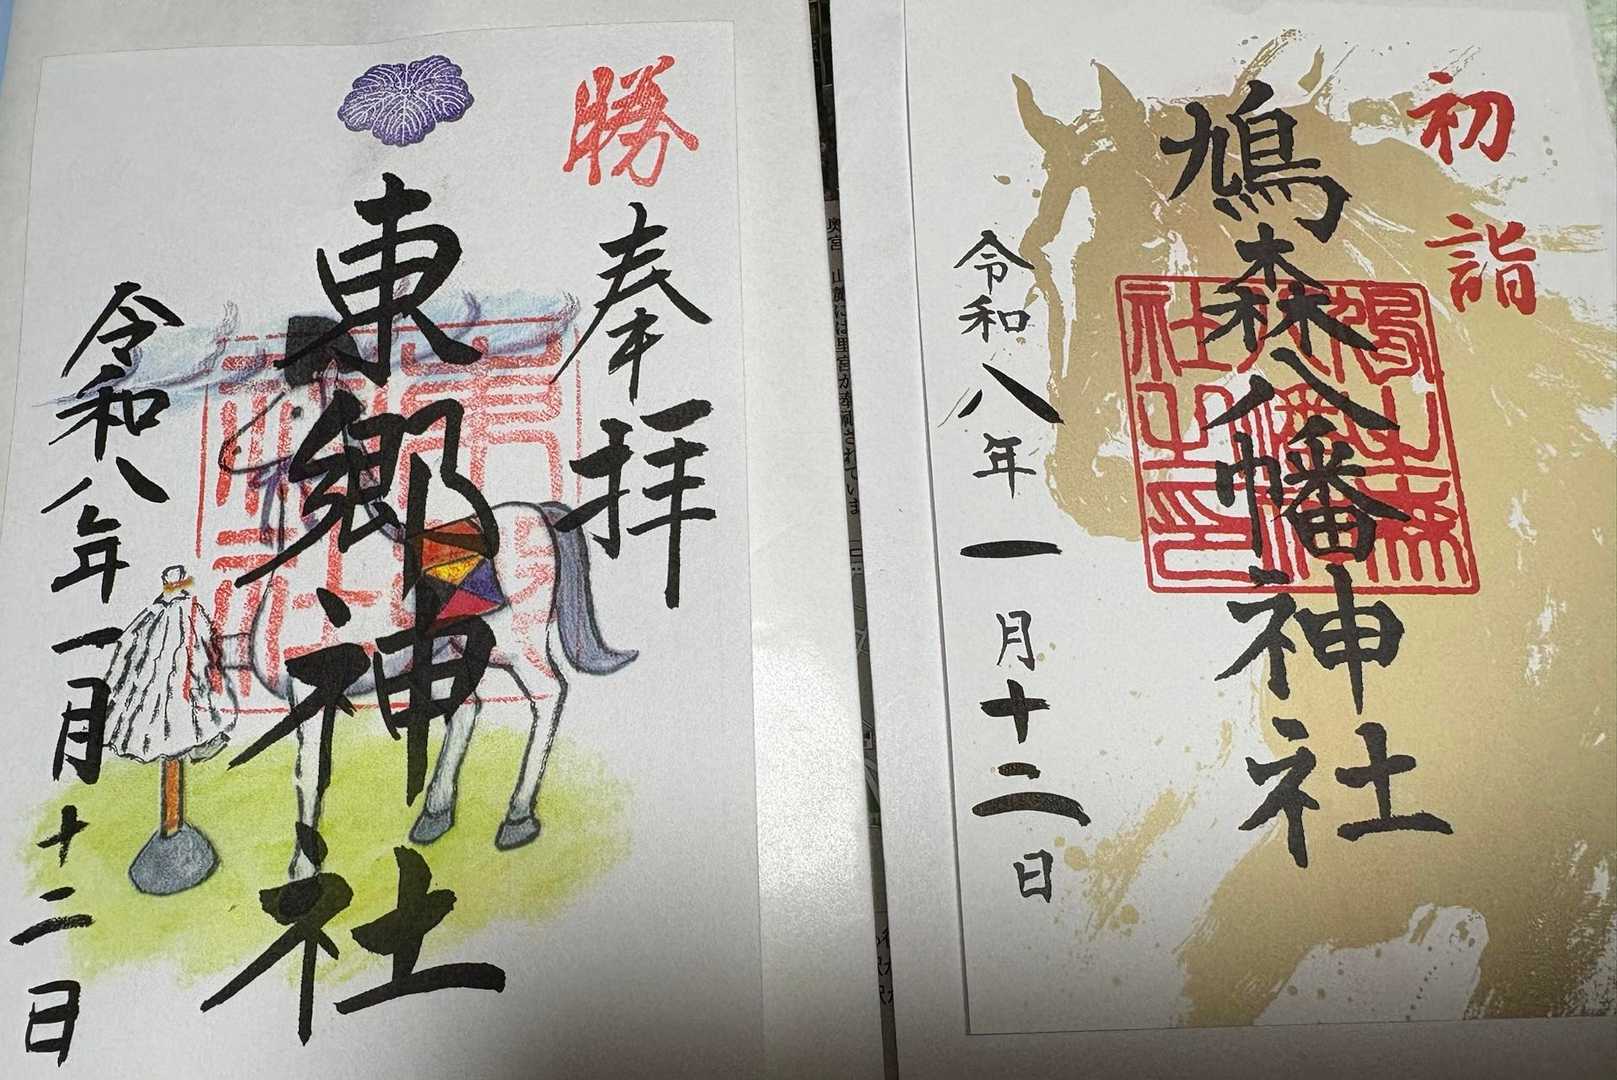 勝
奉拝
東郷神社
令和八年一月十二日
初詣
鳩森八幡神社
令和八年一月十二日